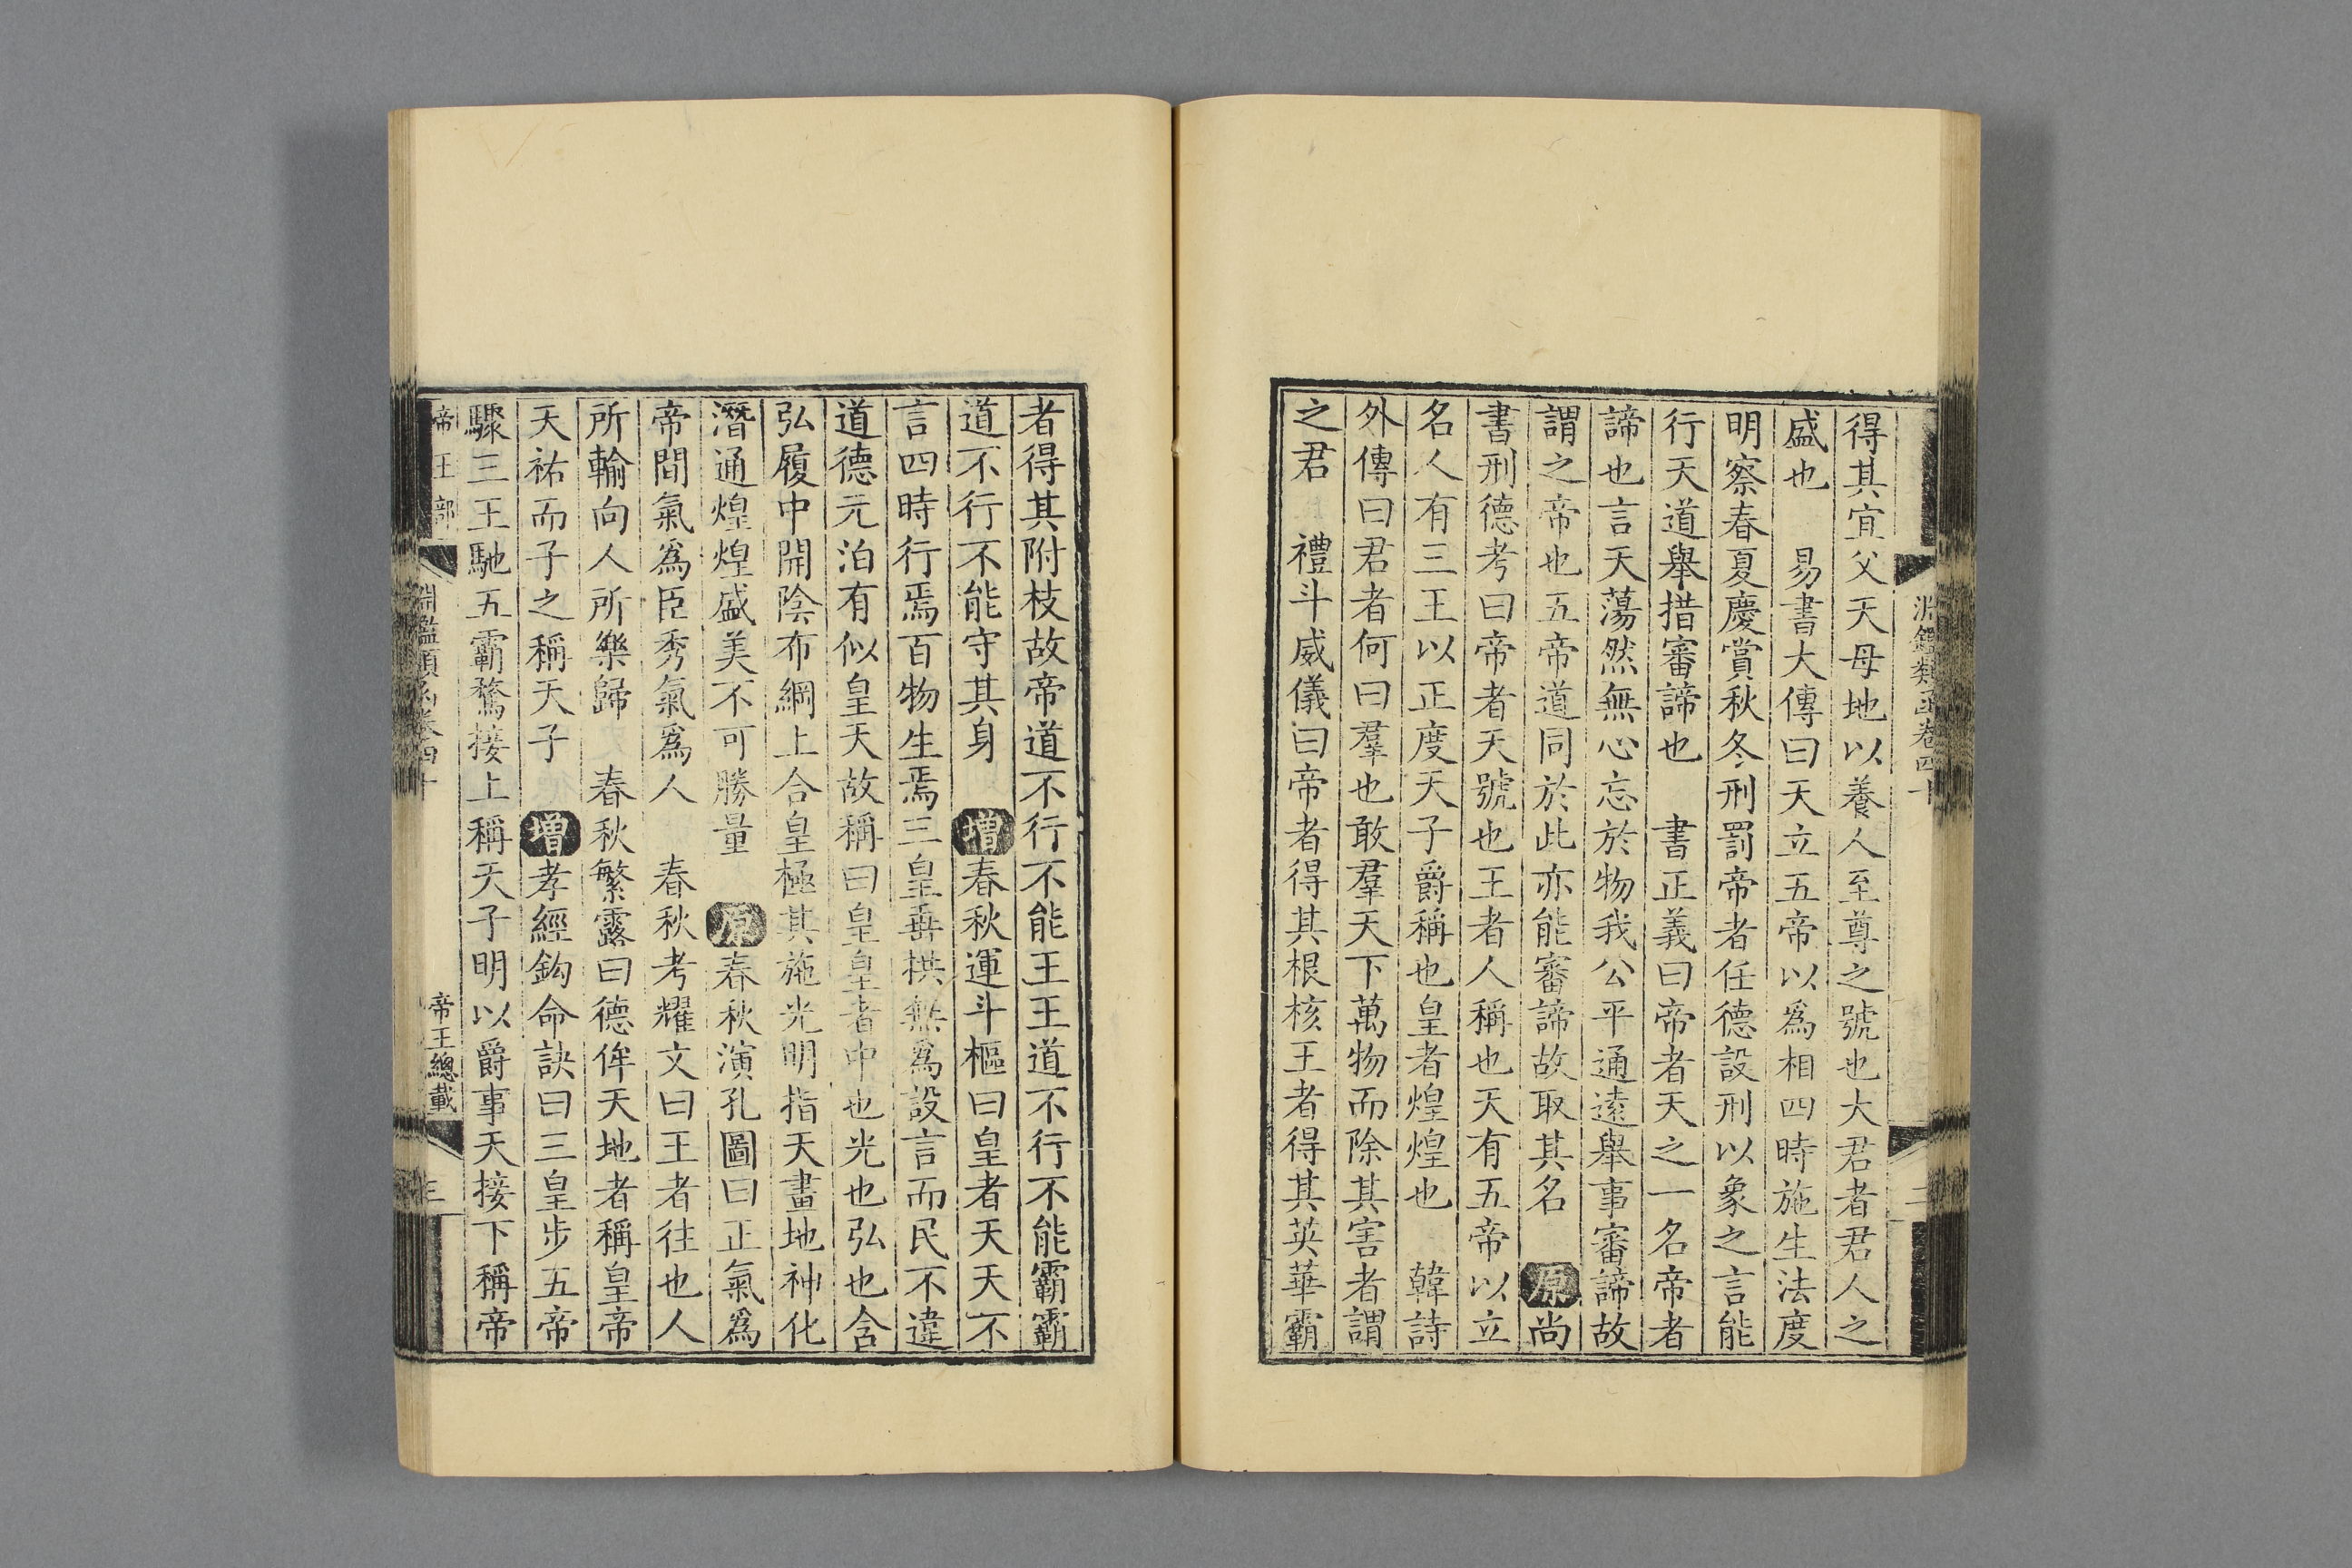 淵鑑類函卷四十
二
得其宜父天母地以養人至尊之號也大君者君人之
盛也 易書大傳曰天立五帝以爲相四時施生法度
明察春夏慶賞秋冬刑罰帝者任德設刑以象之言能
行天道舉措審諦也 書正義曰帝者天之一名帝者
諦也言天蕩然無心忘於物我公平通遠舉事審諦故
謂之帝也五帝道同於此亦能審諦故取其名 原尚
書刑德考曰帝者天號也王者人稱也天有五帝以立
名人有三王以正度天子爵稱也皇者煌煌也 韓詩
外傳曰君者何曰羣也敢羣天下萬物而除其害者謂
之君 禮斗威儀曰帝者得其根核王者得其英華霸
者得其附枝故帝道不行不能王王道不行不能霸霸
道不行不能守其身 増春秋運斗樞曰皇者天天不
言四時行焉百物生焉三皇垂拱無爲設言而民不違
道德元泊有似皇天故稱曰皇皇者中也光也弘也含
弘履中開陰布綱上合皇極其施光明指天畫地神化
潛通煌煌盛美不可勝量 原春秋演孔圖曰正氣爲
帝間氣爲臣秀氣爲人 春秋考耀文曰王者往也人
所輸向人所樂歸 春秋繁露曰德侔天地者稱皇帝
天祐而子之稱天子 増孝經鈎命訣曰三皇步五帝
驟三王馳五霸騖接上稱天子明以爵事天接下稱帝
帝王部一
淵鑑類函卷四十
帝王總載
三